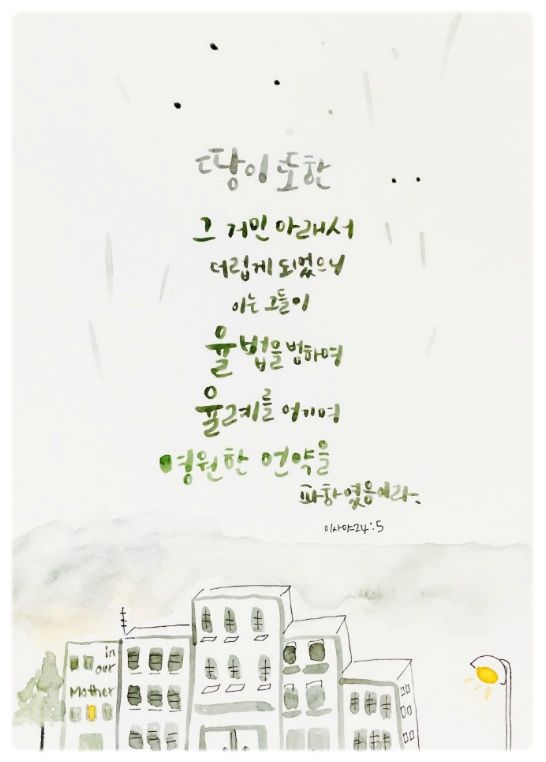 땅이 또한
그 거민 아래서
더럽게 되었으니
이는 그들이
율법을 범하며
율례를 어기며
영원한 언약을
파하였음이라.
이사야24:5
in
our
Mother